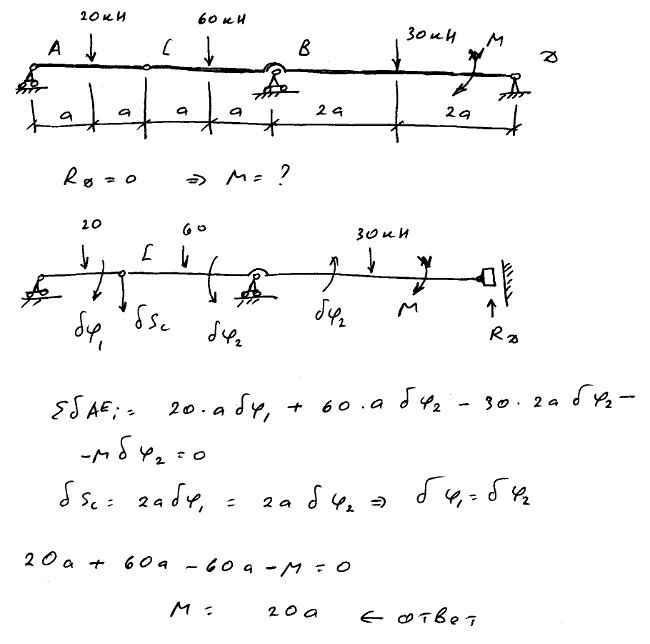 20кН 60кН 30кН M
A C B D
a a a a 2a 2a
R_D = 0 ⇒ M = ?
20 60 30кН
C
δφ₁ δS_C δφ₂ δφ₂ M R_D
ΣδAᴱᵢ = 20·a δφ₁ + 60·a δφ₂ - 30·2a δφ₂ -
-M δφ₂ = 0
δS_C = 2a δφ₁ = 2a δφ₂ ⇒ δφ₁ = δφ₂
20a + 60a - 60a - M = 0
M = 20a ← ответ